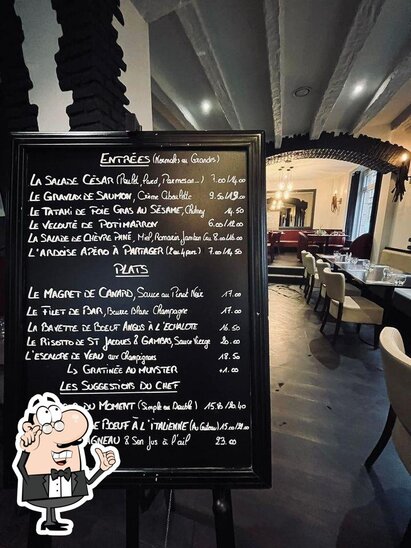 ENTRÉES (Normales ou Grandes)
LA SALADE CÉSAR (Poulet, Lard, Parmesan...) 7.00/14.00
LE GRAVLAX DE SAUMON, Crème Ciboulette 9.50/19.00
LE TATAKI DE FOIE GRAS AU SÉSAME, Chutney 14.50
LE VELOUTÉ DE POTIMARRON 6.00/12.00
LA SALADE DE CHÈVRE PANÉ, Miel, Romarin, Jambon Cru 8.00/16.00
L'ARDOISE APÉRO À PARTAGER (2 ou 4 pers) 7.00/14.50
PLATS
LE MAGRET DE CANARD, Sauce au Pinot Noir 17.00
LE FILET DE BAR, Beurre Blanc Champagne 17.00
LA BAVETTE DE BŒUF ANGUS À L'ÉCHALOTE 16.50
LE RISOTTO DE ST JACQUES & GAMBAS, Sauce Vierge 20.00
L'ESCALOPE DE VEAU aux Champignons 18.50
↳ GRATINÉE AU MUNSTER +1.00
LES SUGGESTIONS DU CHEF
DU MOMENT (Simple ou Double) 15.40/20.40
DE BŒUF À L'ITALIENNE (Au Couteau) 15.00/21.00
AGNEAU & Son Jus à l'ail 23.00